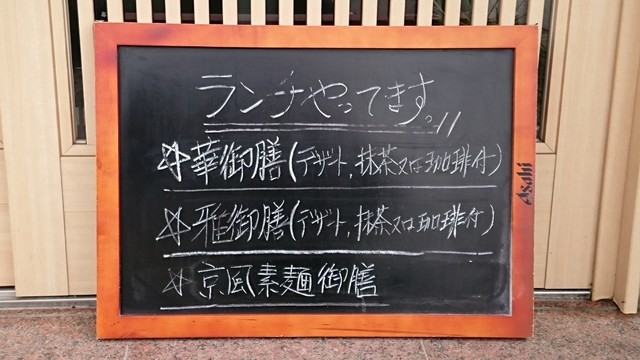 ランチやってます。
☆華御膳(デザート,抹茶又は珈琲付)
☆雅御膳(デザート,抹茶又は珈琲付)
☆京風素麺御膳
Asahi